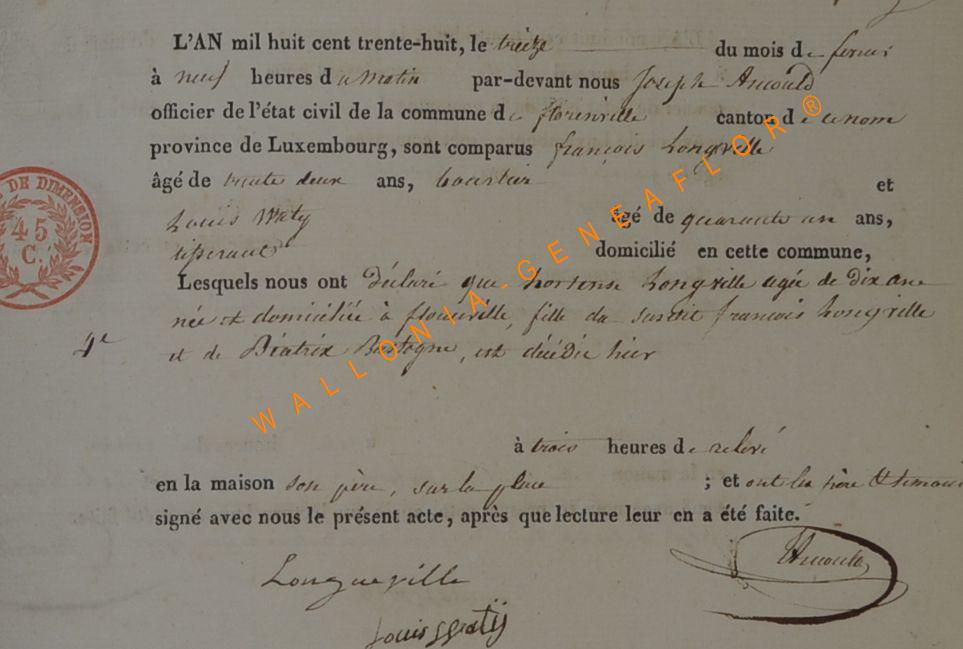 L'AN mil huit cent trente-huit, le treize du mois de fevrier
à neuf heures du matin par-devant nous Joseph Arnould
officier de l'état civil de la commune de florenville canton de ce nom
province de Luxembourg, sont comparus françois Longville
âgé de trente deux ans, et
Louis Waty âgé de quarante un ans,
tisserand domicilié en cette commune,
Lesquels nous ont déclaré que hortense Longville agée de dix ans
née et domiciliée à florenville, fille du susdit françois Longville
4e
et de Béatrix Bastogne, est décédée hier
à trois heures de relevé
en la maison son père, sur la place ; et ont les père & témoin
signé avec nous le présent acte, après que lecture leur en a été faite.
Longueville
Arnould
Louis Watij
DE DIMENSION
45
C.
WALLONIA-GENEAFLOR®